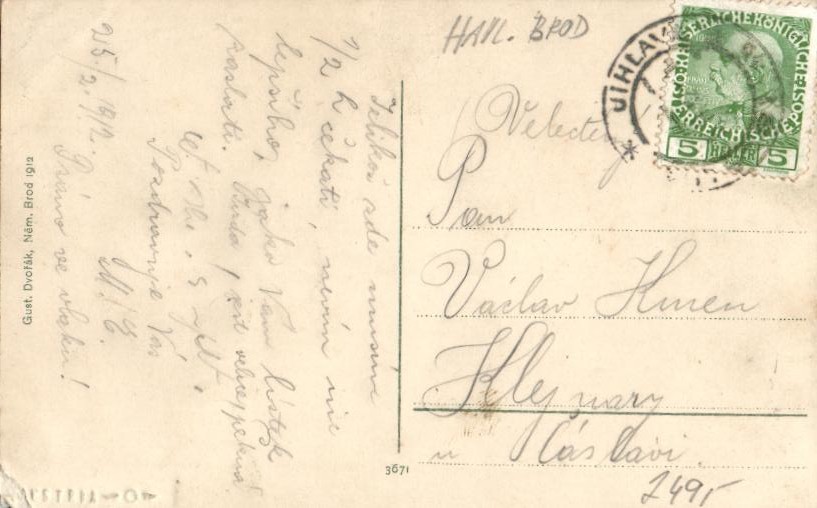 HAVL. BROD
JIHLAVA
KAISERLICHE KÖNIGLICHE
ÖSTERREICHISCHE POST
5 HELLER 5
Velectěný
Pan
Václav Kmen
Klejnary
u Čáslavi.
249,-
Jelikož zde musím
1/2 h čekati, nevím nic
lepšího, jako Vám lístek
zaslati. Cesta
Pozdravuje Vás
M. Č.
25/2. 1912.
Psáno ve vlaku!
Gust. Dvořák, Něm. Brod 1912
3671